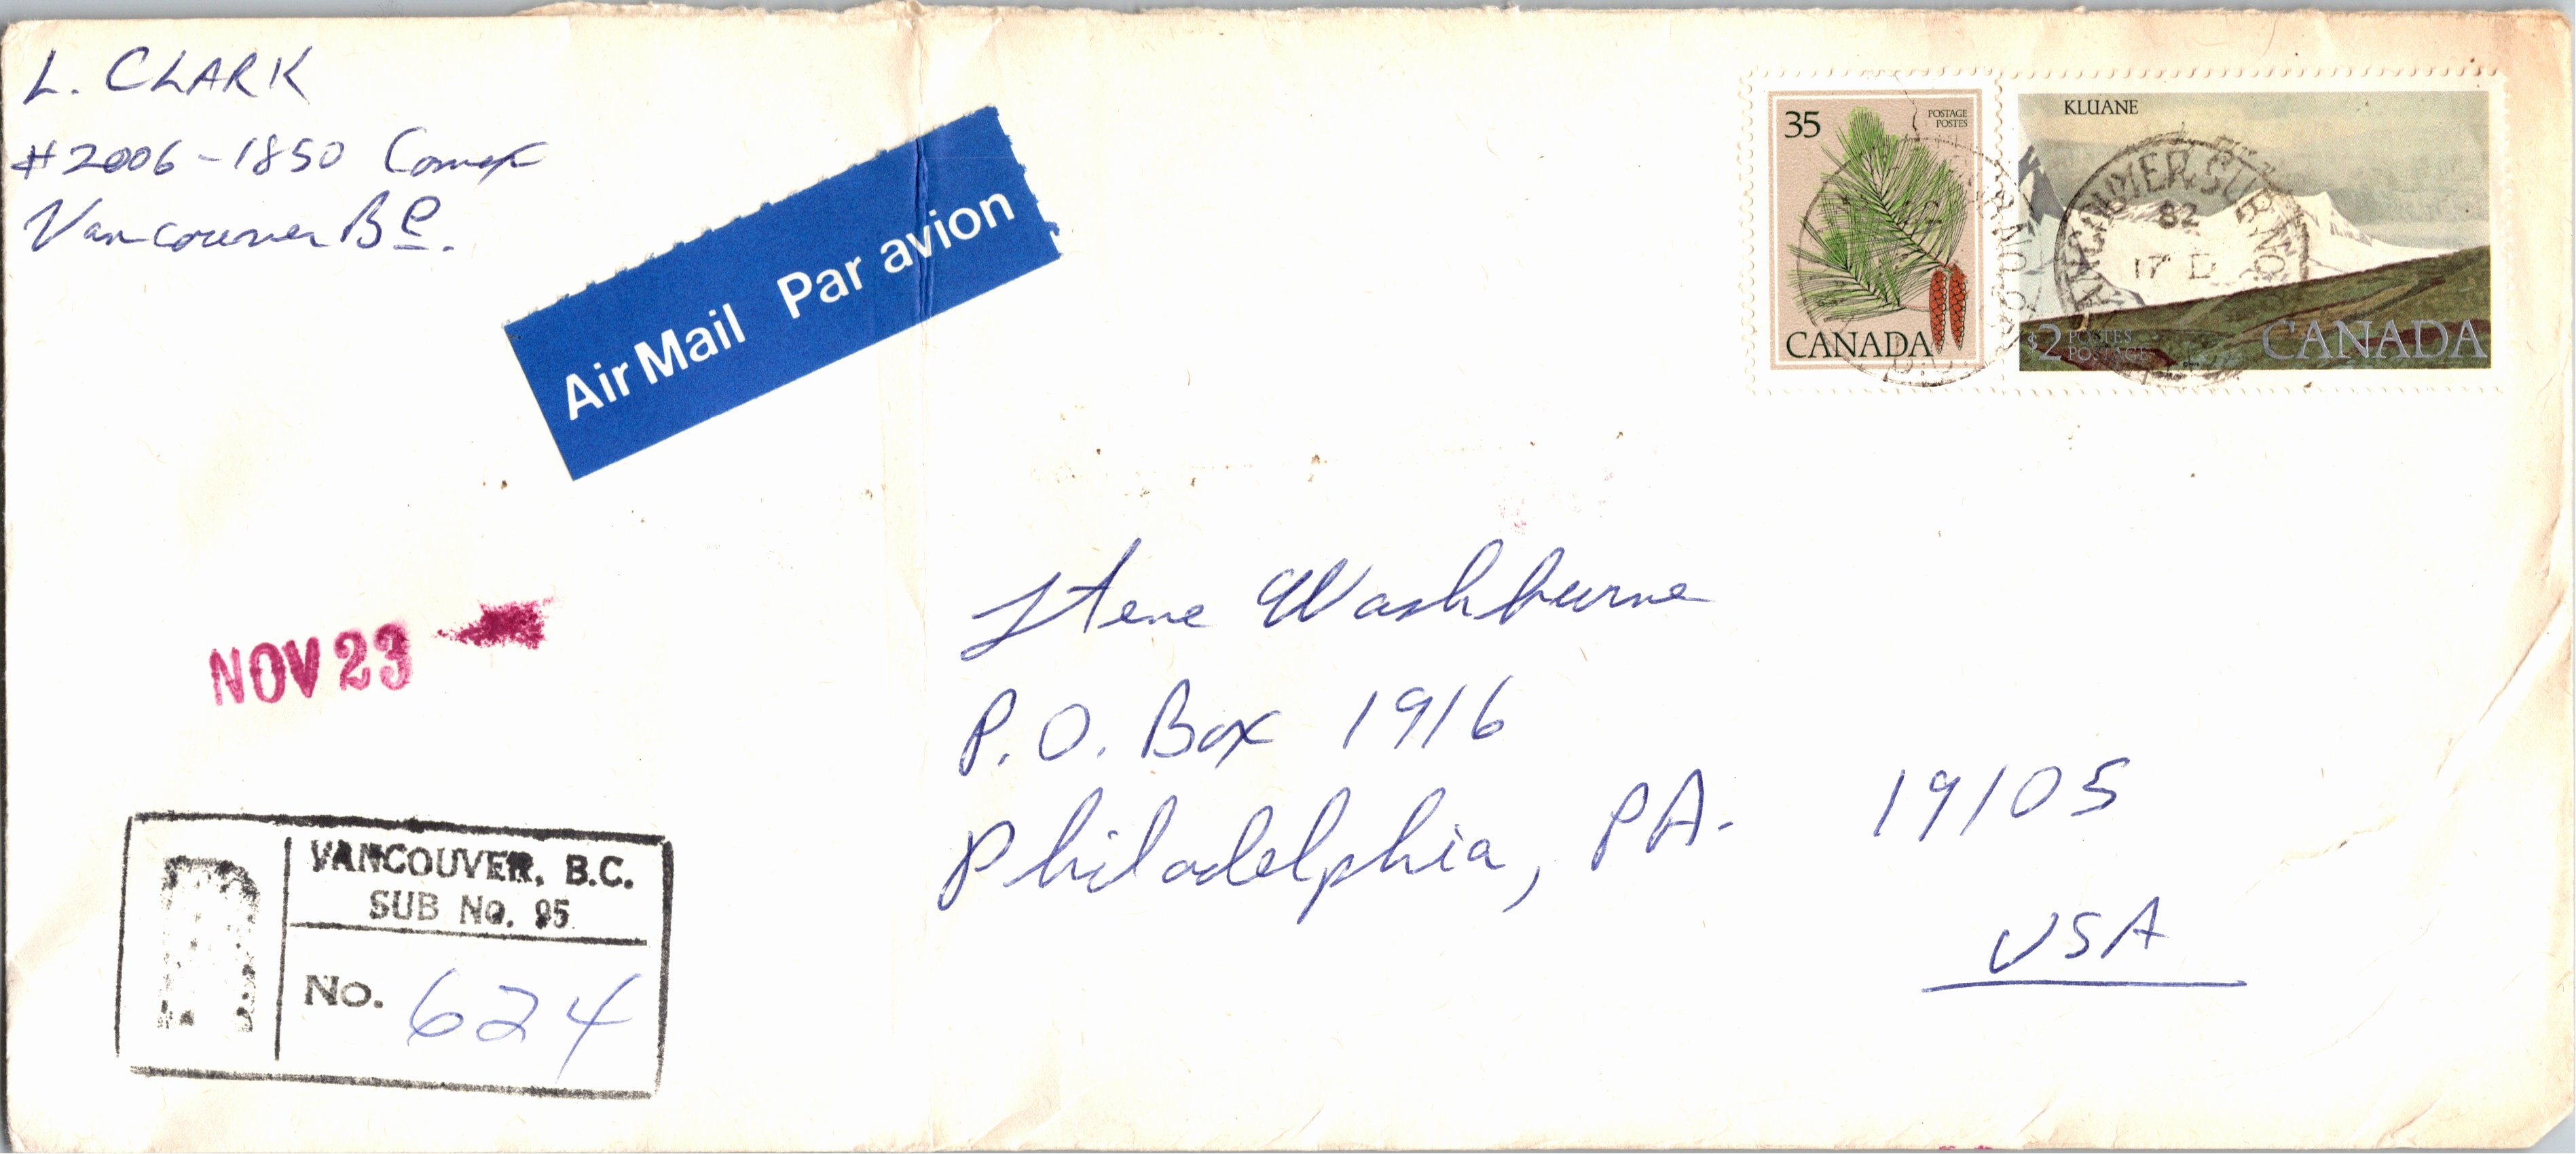 L. CLARK
#2006-1850 Comox
Vancouver BC.
Air Mail Par avion
35
POSTAGE
POSTES
CANADA
KLUANE
$2 POSTES
POSTAGE
CANADA
VANCOUVER, SUB NO.
82
17
B.C.
NOV 23
Steve Washburne
P.O. Box 1916
Philadelphia, PA. 19105
USA
VANCOUVER, B.C.
SUB No. 95
No. 624